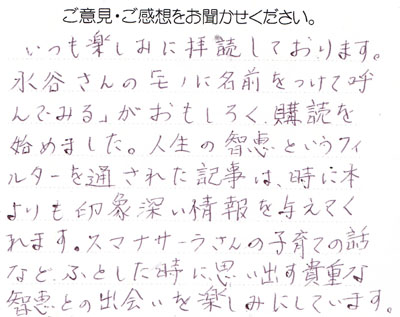 ご意見・ご感想をお聞かせください。
いつも楽しみに拝読しております。
水谷さんの「モノに名前をつけて呼
んでみる」がおもしろく、購読を
始めました。人生の智恵というフィ
ルターを通された記事は、時に本
よりも印象深い情報を与えてく
れます。スマナサーラさんの子育ての話
など、ふとした時に思い出す貴重な
智恵との出会いを楽しみにしています。